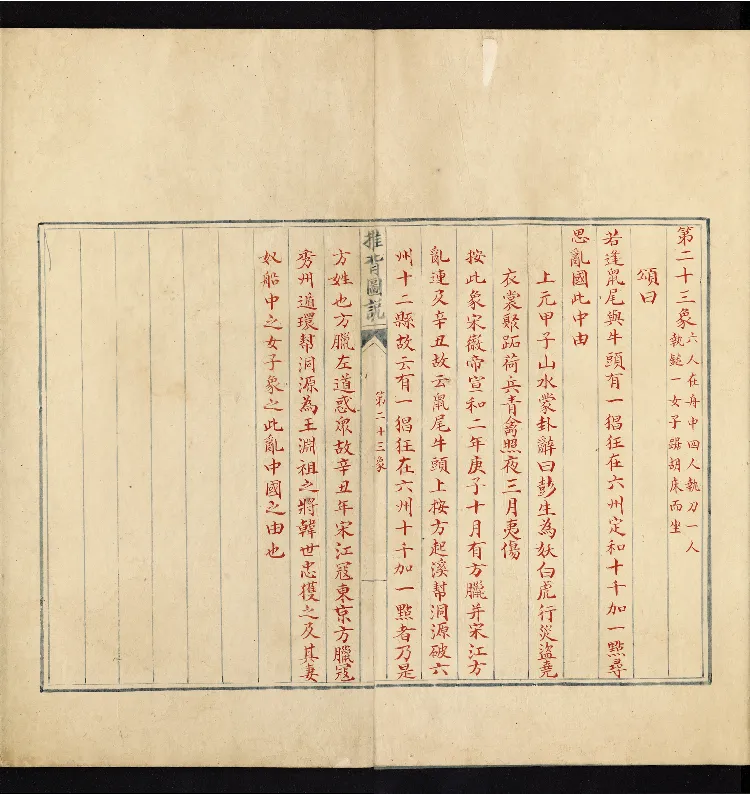 第二十三象六人在舟中四人執刀一人
執鎚一女子踞胡床而坐
頌曰
若逢鼠尾與牛頭有一猖狂在六州定和十千加一點尋
思亂國此中由
上元甲子山水蒙卦辭曰彭生為妖白虎行災盜堯
衣裳聚跖荷兵青禽照夜三月夷傷
按此象宋徽帝宣和二年庚子十月有方臘并宋江方
亂連及辛丑故云鼠尾牛頭上按方起溪幫洞源破六
州十二縣故云有一猖狂在六州十千加一點者乃是
推背圖說
第二十三象
方姓也方臘左道惑眾故辛丑年宋江寇東京方臘寇
秀州遁環幫洞源為王淵祖之將韓世忠獲之及其妻
奴船中之女子象之此亂中國之由也